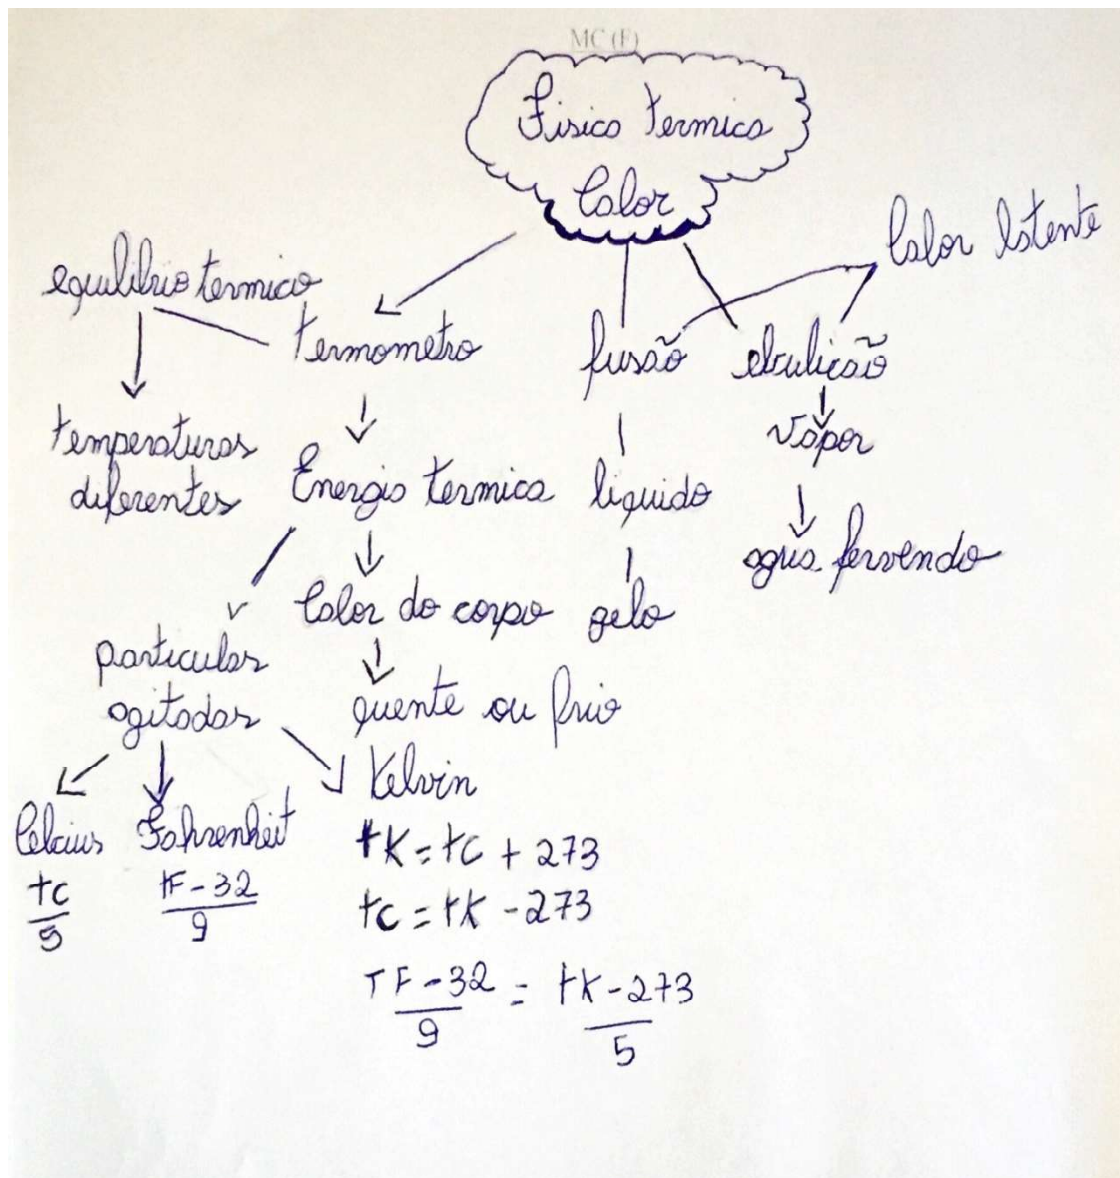 MC (F)
Fisica termica
Calor
Calor latente
equilibrio termico
termometro
fusão
ebulição
temperaturas
diferentes
Energia termica
liquido
vapor
agua fervendo
Calor do corpo
gelo
particulas
agitadas
quente ou frio
Celcius
Fahrenheit
Kelvin
tc/5
tF-32/9
tK = tc + 273
tc = tK - 273
TF-32/9 = tK-273/5